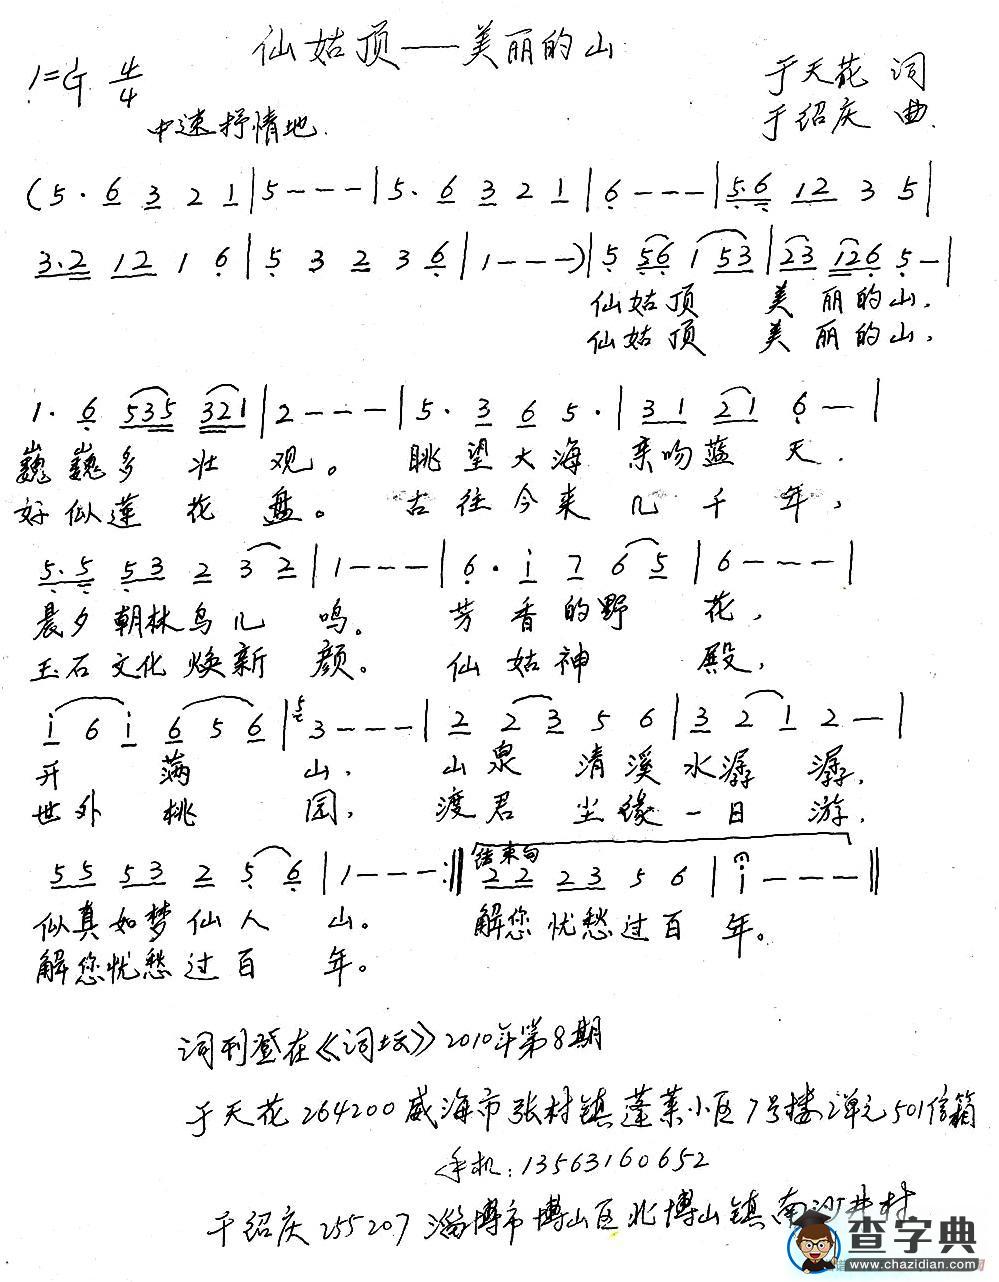 仙姑顶——美丽的山
1=G 4/4
于天花 词
中速抒情地
于绍庆 曲
(5· 6 3 2 1|5---|5· 6 3 2 1|6---|5·6 12 3 5|
3·2 12 1 6|5 3 2 3 6|1---)|5 56 1 53|23 126 5-|
仙姑顶 美丽的山,
仙姑顶 美丽的山,
1· 6 535 321|2---|5· 3 6 5·|31 21 6-|
巍巍多壮观。 眺望大海亲吻蓝天.
好似莲花盘。 古往今来几千年,
5·5 53 2 32|1---|6· i 7 65|6---|
晨夕朝林鸟儿鸣。 芳香的野花,
玉石文化焕新颜。 仙姑神殿,
i 6 i 6 5 6|3---|2 23 5 6|3 2 1 2-|
开满山. 山泉清溪水潺潺,
世外桃园, 渡君尘缘一日游,
结束句
55 53 2 5 6|1---:‖22 23 5 6|i---‖
似真如梦仙人山。 解您忧愁过百年。
解您忧愁过百年。
词刊登在《词坛》2010年第8期
于天花 264200 威海市张村镇蓬莱小区7号楼2单元501信箱
手机:13563160652
于绍庆 255207 淄博市博山区北博山镇南沙井村
查字典
www.chazidian.com